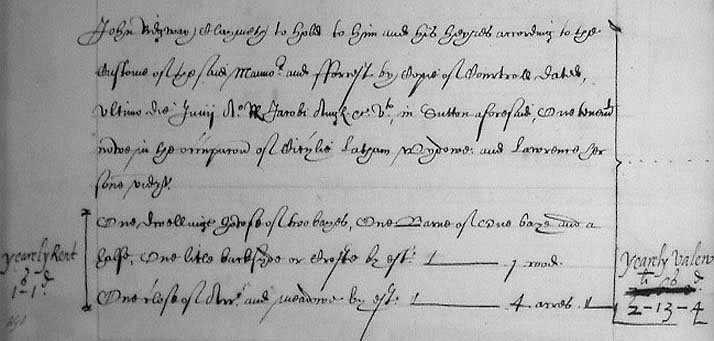 John Ridgway Claymeth to hold to him and his heyres according to the
Custome of the said Manno.r and fforrest by Copie of Courtroll dated,
ultimo die Junii A.o R Jacobi Angl &c v.to, in Sutton aforesaid, One tenem.t
nowe in the occupacon of Latham Wydowe and Lawrence her
sone vidz.t
One dwellinge howse of two bayes, One Barne of One baye and a
halfe, One litle backsyde or by est: 1 rood.
One close of Arr. and meadowe by est: 4 acres
yearly Rent
s d
1-1.d
yearly Valew
li s d
2-13-4